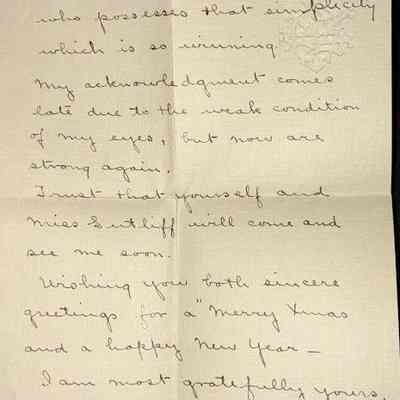 who possesses that simplicity
which is so winning.
My acknowledgment comes
late due to the weak condition
of my eyes, but now are
strong again.
I trust that yourself and
Miss Sutliff will come and
see me soon.
Wishing you both sincere
greetings for a "Merry Xmas
and a happy New Year —
I am most gratefully yours,